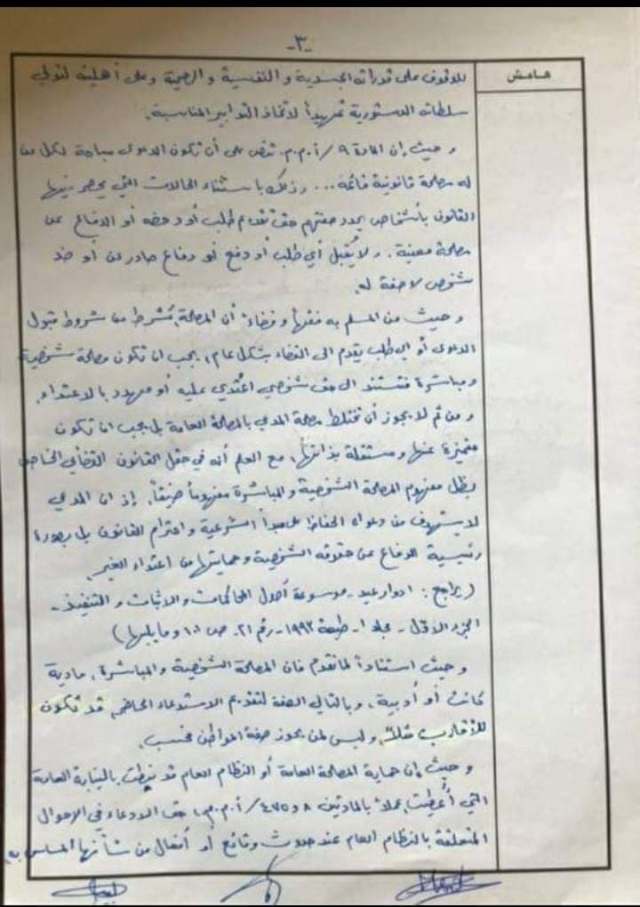 -٣-
هامش
للوقوف على قدراته الجسدية و النفسية و الرحمية وعلى أهليته لتولي
سلطاته الدستورية تمهيداً لاتخاذ التدابير المناسبة.
و حيث إن المادة ٩/أ.م.م. تنص على أن تكون الدعوى مباحة لكل من
له مصلحة قانونية قائمة... وذلك باستثناء الحالات التي يحصر فيها
القانون بأشخاص يحدد صفتهم حق تقديم طلب أو دحضه أو الدفاع عن
مصلحة معينة. ولا يُقبل أي طلب أو دفع أو دفاع صادر عن أو ضد
شخص لا صفة له.
و حيث من المسلم به فقهاً و قضاءً أن المصلحة شرط من شروط قبول
الدعوى أو اي طلب يقدم الى القضاء بشكل عام، يجب ان تكون مصلحة شخصية
و مباشرة فتستند الى حق شخصي اعتُدي عليه أو مهدد بالاعتداء.
و من ثم لا يجوز أن تختلط مصلحة المدعي بالمصلحة العامة بل يجب ان تكون
متميزة عنها ومستقلة بذاتها، مع العلم أنه في حقل القانون القضائي الخاص
يظل مفهوم المصلحة الشخصية والمباشرة مفهوماً ضيقاً. إذ ان المدعي
لا يستهدف من دعواه الحفاظ على مبدأ الشرعية و احترام القانون بل بصورة
رئيسية الدفاع عن حقوقه الشخصية و حمايتها من اعتداء الغير.
(يراجع: ادوار عيد - موسوعة أصول المحاكمات والاثبات والتنفيذ -
الجزء الاول - مجلد ١ - طبعة ١٩٩٢ - رقم ٢١ - ص ١٠١ وما يليها)
و حيث استناداً لما تقدم فان المصلحة الشخصية والمباشرة، مادية
كانت أو أدبية، وبالتالي الصفة لتقديم الاستدعاء الحاضر قد تكون
للأقارب مثلاً، وليس لمن يحوز صفة المواطن فحسب.
و حيث إن حماية المصلحة العامة أو النظام العام قد نيطت بالنيابة العامة
التي أُعطيت، عملاً بالمادتين ٨ و ٤٧٥/أ.م.م.، حق الادعاء في الاحوال
المتعلقة بالنظام العام عند حدوث وقائع أو أفعال من شأنها المساس به،